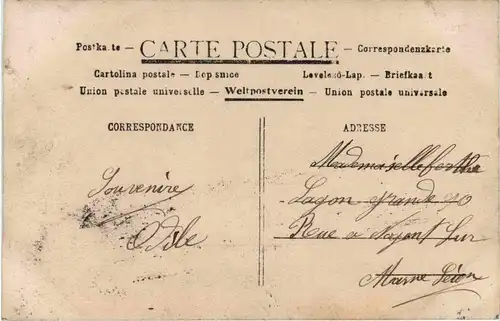 Postkarte — CARTE POSTALE — Correspondenzkarte
Cartolina postale — Dopisnice Levelező-Lap. — Briefkaart
Union postale universelle — Weltpostverein — Union postale universale
CORRESPONDANCE
ADRESSE
Souvenire
Odile
Mademoiselle Berthe
Lagon grande 20
Rue a Nogent Sur
Marne